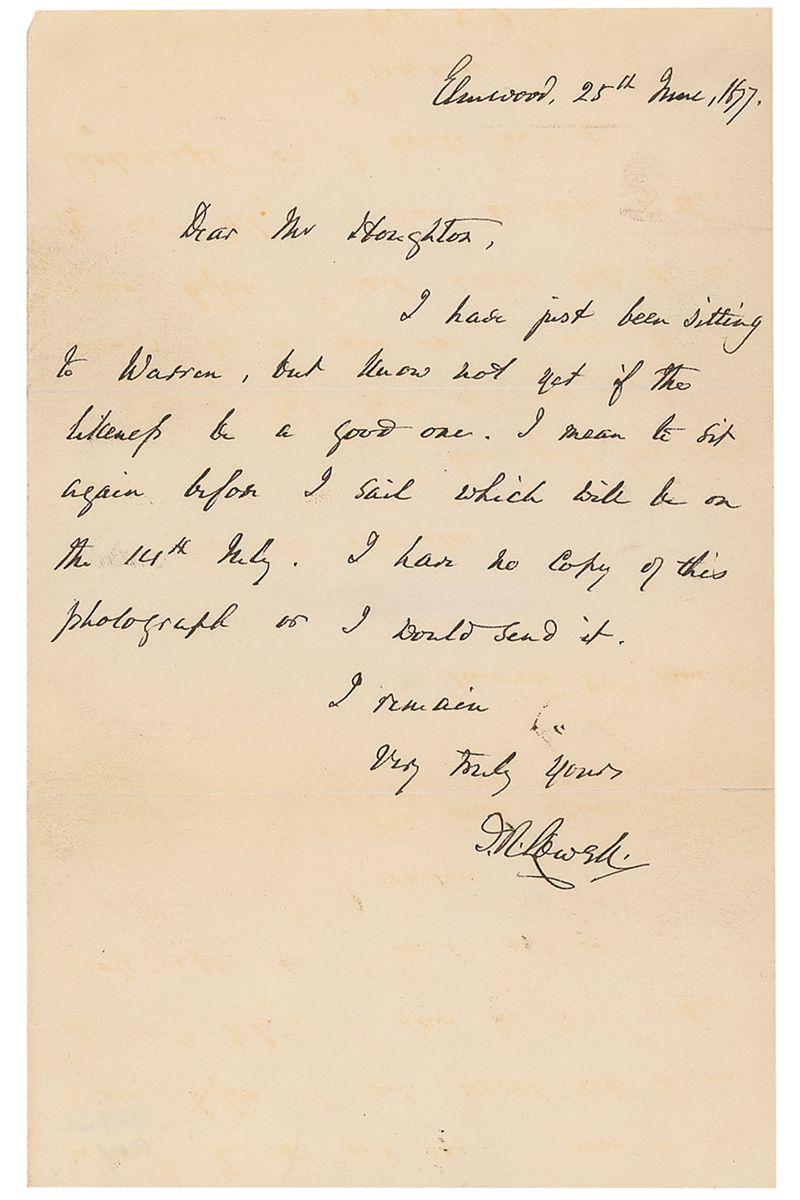 Elmwood, 25th June, 1877.
Dear Mr Houghton,
I have just been sitting
to Warren, but know not yet if the
likeness be a good one. I mean to sit
again before I sail which will be on
the 14th July. I have no copy of this
photograph or I would send it.
I remain
Very truly yours
J. R. Lowell.